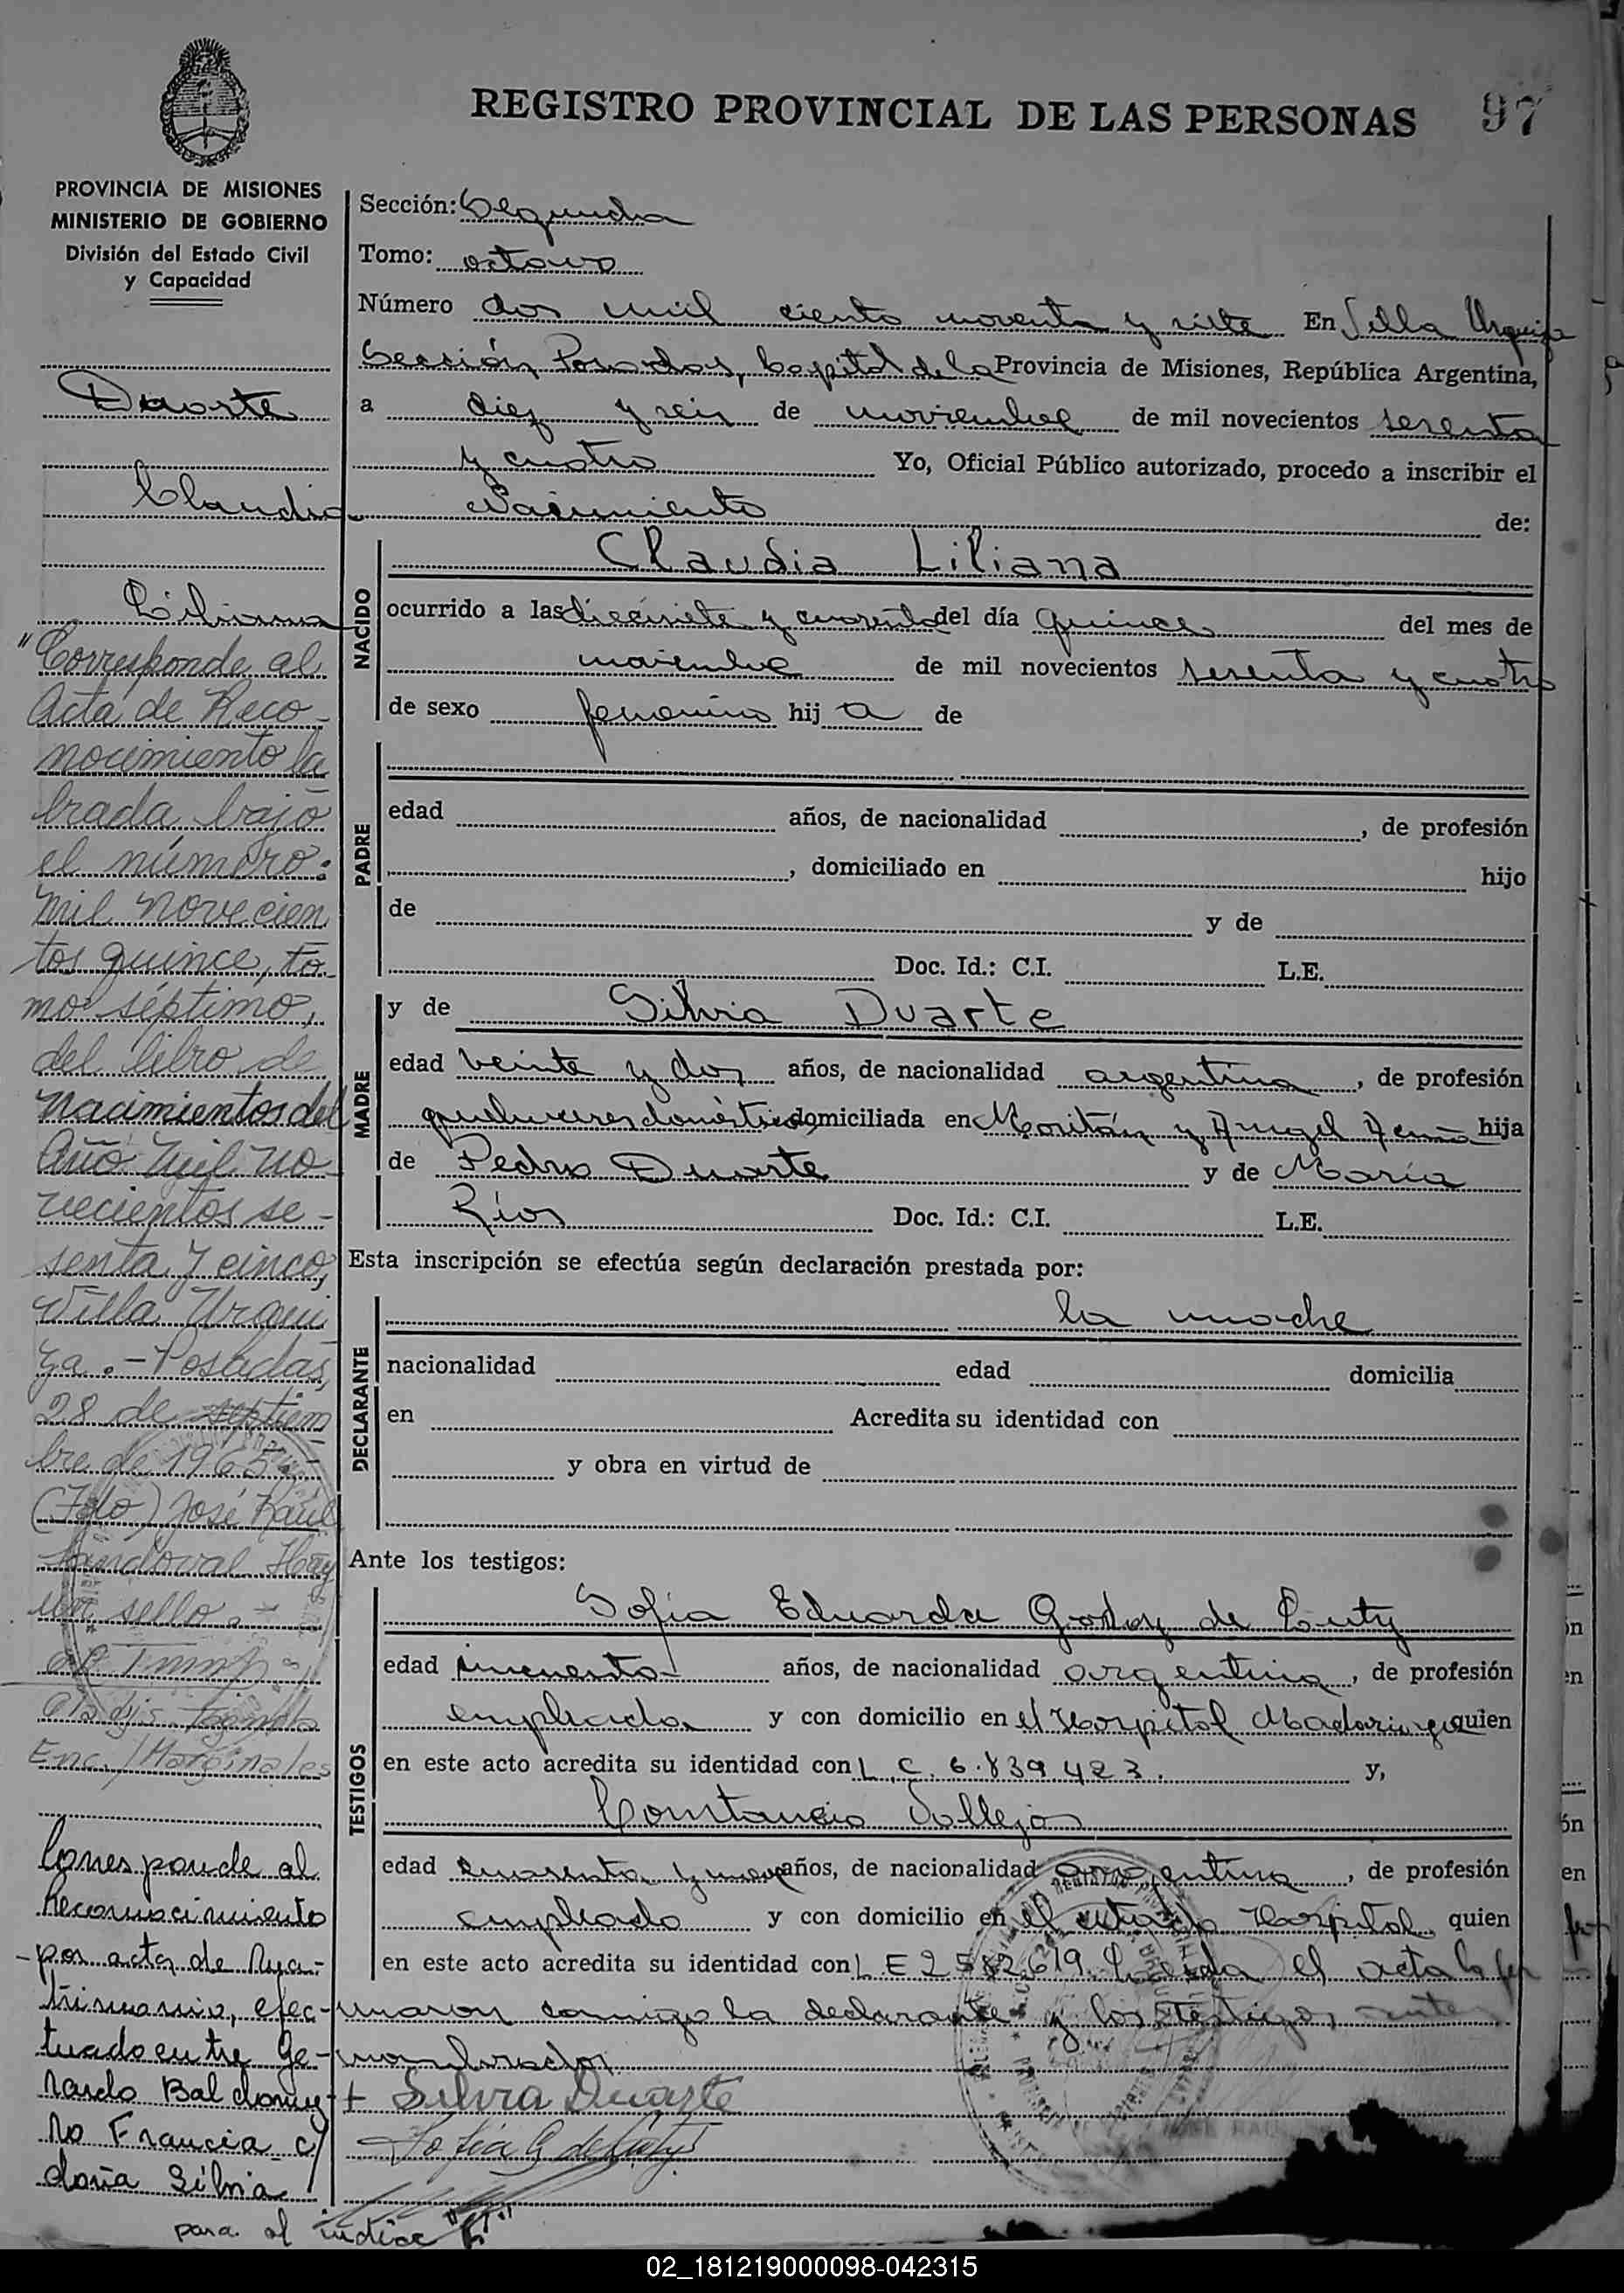 REGISTRO PROVINCIAL DE LAS PERSONAS 97
PROVINCIA DE MISIONES
MINISTERIO DE GOBIERNO
División del Estado Civil
y Capacidad
Duarte
Claudia
Liliana
"Corresponde al
Acta de Reco-
nocimiento la
brada bajo
el número:
mil novecien
tos quince, to-
mo séptimo,
del libro de
Nacimientos del
Año Mil no-
vecientos se-
senta y cinco,
Villa Urqui
za.-Posadas,
28 de septiem
bre de 1965.-
(Fdo) José Raúl
Sandoval Hay
un sello.-
Enc./Marginales
Corresponde al
Reconocimiento
-por acta de Ma-
trimonio, efec-
tuado entre Ge-
rardo Baldome-
ro Francia c/
doña Silvia
para el indice "F"
Sección: Segunda
Tomo: octavo
Número dos mil ciento noventa y siete En Villa Urquiza
Sección Posadas, Capital de la Provincia de Misiones, República Argentina,
a diez y seis de noviembre de mil novecientos sesenta
y cuatro Yo, Oficial Público autorizado, procedo a inscribir el
Nacimiento de:
NACIDO
Claudia Liliana
ocurrido a las diecisiete y cuarenta del día quince del mes de
noviembre de mil novecientos sesenta y cuatro
de sexo femenino hij a de
PADRE
edad años, de nacionalidad , de profesión
, domiciliado en hijo
de y de
Doc. Id.: C.I. L.E.
MADRE
y de Silvia Duarte
edad veinte y dos años, de nacionalidad argentina, de profesión
quehaceres domésticos, domiciliada en Moritán y Angel Acuña hija
de Pedro Duarte y de María
Ríos Doc. Id.: C.I. L.E.
Esta inscripción se efectúa según declaración prestada por:
DECLARANTE
la madre
nacionalidad edad domicilia
en Acredita su identidad con
y obra en virtud de
Ante los testigos:
TESTIGOS
Sofia Eduarda Godoy de Couty
edad cincuenta años, de nacionalidad argentina, de profesión
empleada y con domicilio en el Hospital Madariaga quien
en este acto acredita su identidad con L.C. 6.839.423. y,
Constancio Vallejos
edad cuarenta y nueve años, de nacionalidad argentina, de profesión
empleado y con domicilio en el citado Hospital quien
en este acto acredita su identidad con L E 2582619. Leída el acta la fir
maron conmigo la declarante y los testigos antes
nombrados
+ Silvia Duarte
Sofia G de Couty
02_181219000098-042315